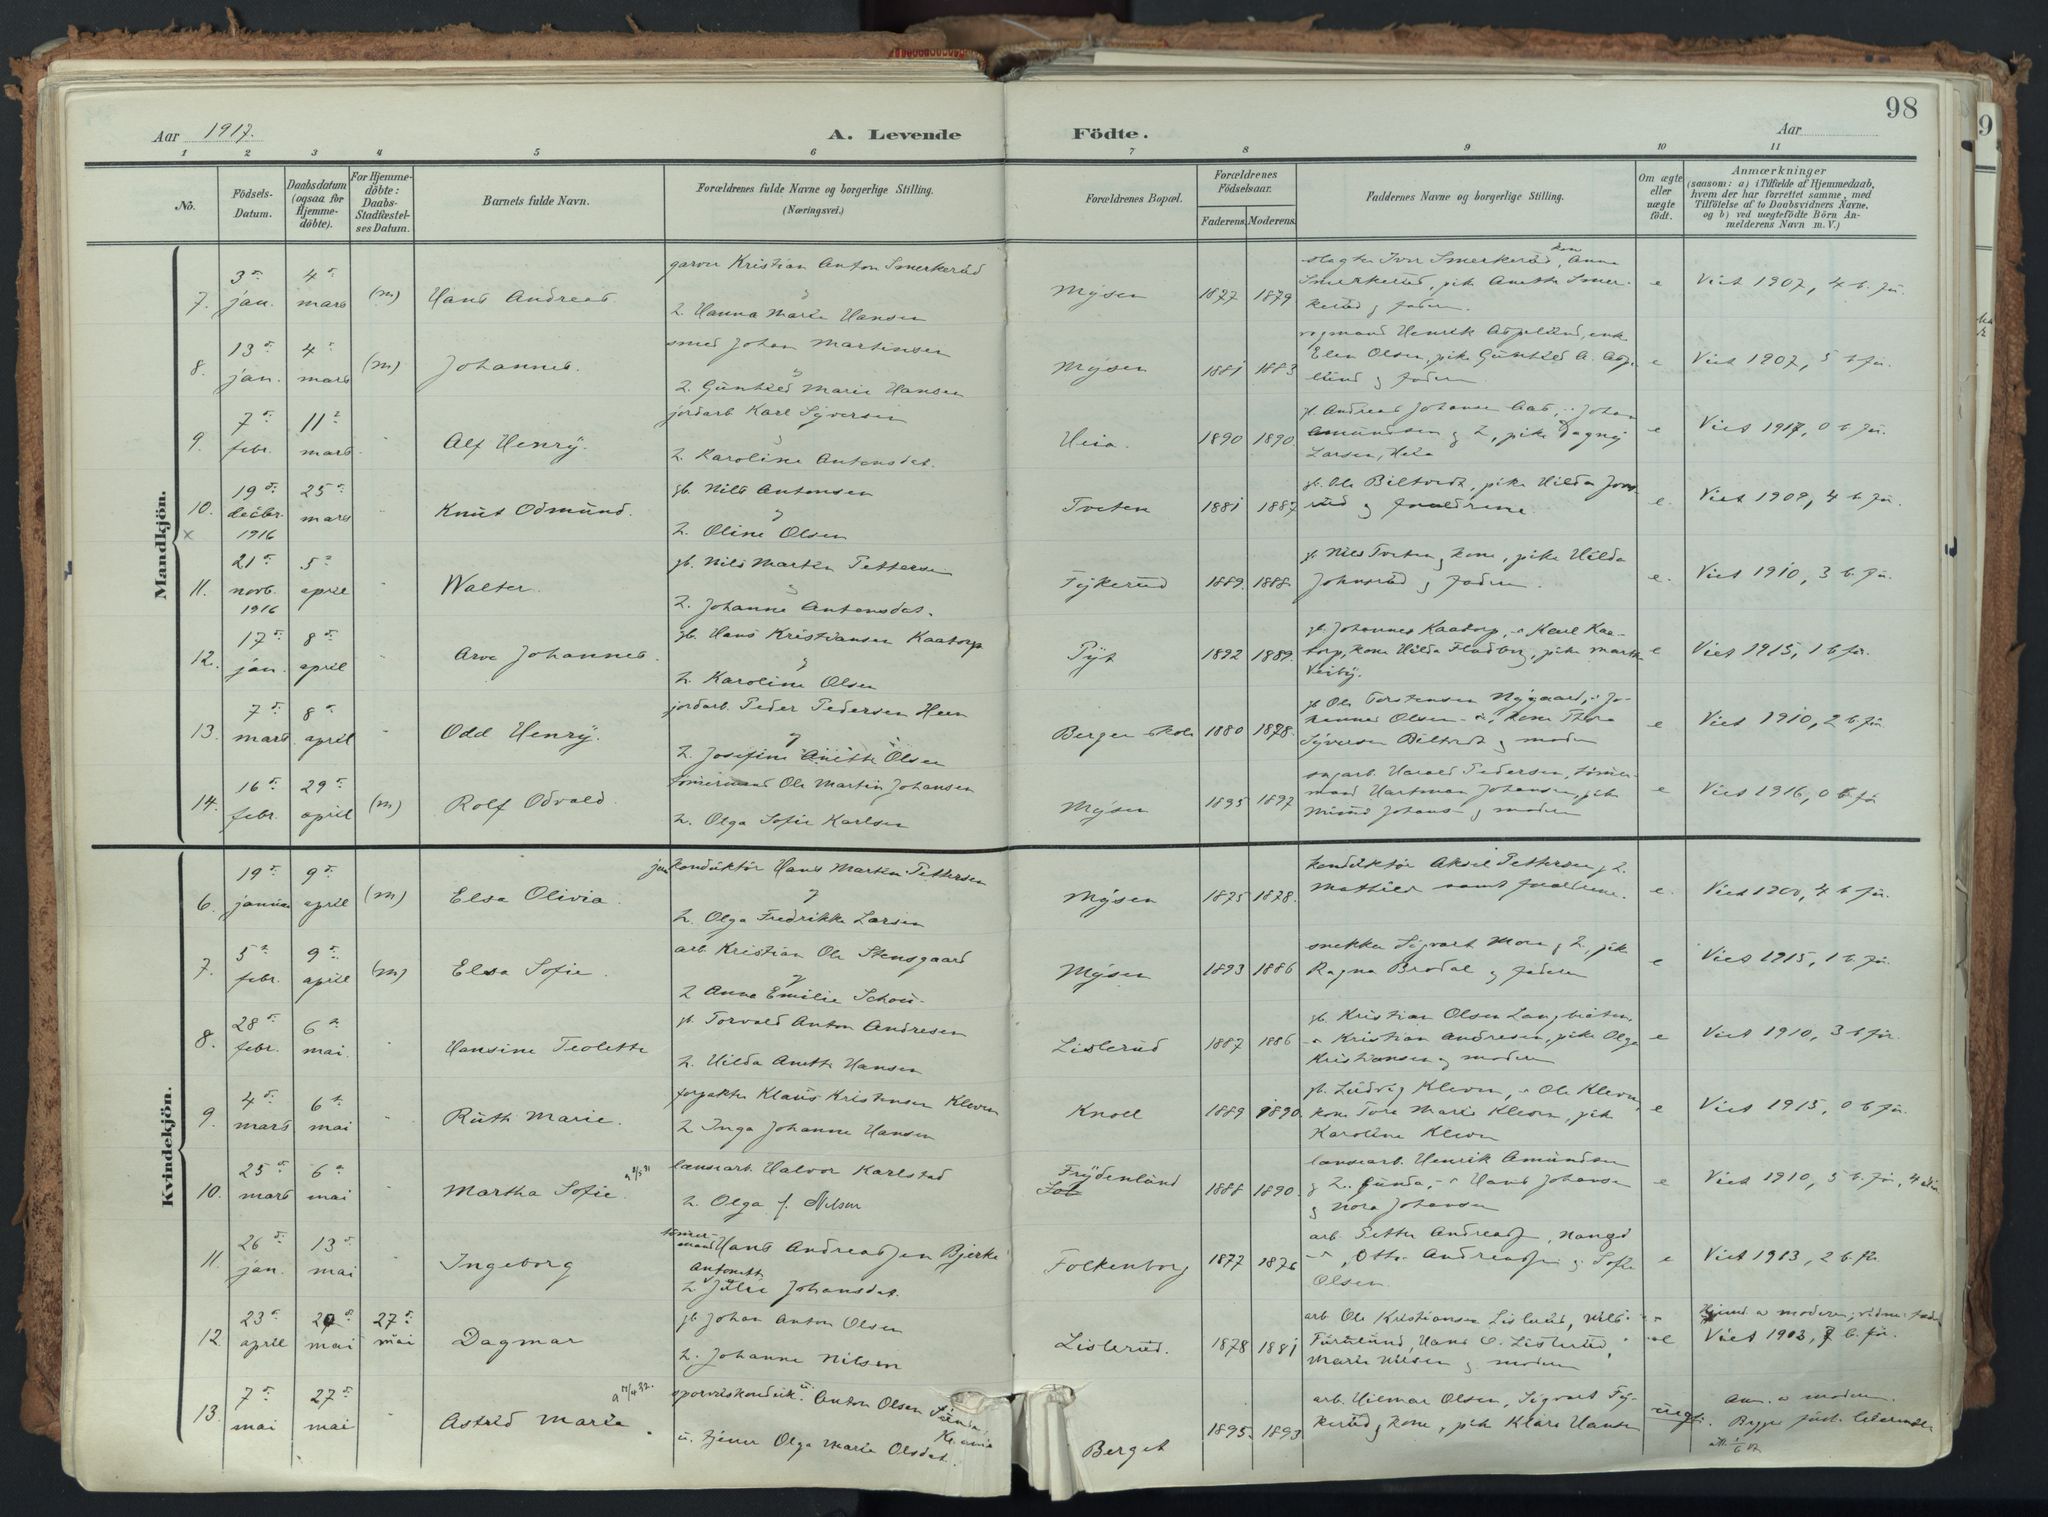 98
Aar 1917.
A. Levende Födte.
Aar
1 2 3 4 5 6 7 8 9 10 11
No.
Födsels-Datum.
Daabsdatum (ogsaa for Hjemme-döbte).
For Hjemme-döbte: Daabs-Stadfæstel-ses Datum.
Barnets fulde Navn.
Forældrenes fulde Navne og borgerlige Stilling.
(Næringsvei.)
Forældrenes Bopæl.
Forældrenes Födselsaar.
Faderens. Moderens.
Faddernes Navne og borgerlig Stilling.
Om ægte eller uægte födt.
Anmærkninger
(saasom: a) i Tilfælde af Hjemmedaab,
hvem der har forrettet samme, med
Tilföielse af to Daabsvidners Navne,
og b) ved uægtefödte Börn An-
melderens Navn m. V.)
Mandkjön.
7. 3 jan. 4 mars (m) Hans Andreas.
garver Kristian Anton Smerkerud
Hanna Marie Hansen
Mysen 1877 1879
Smerkerud, pike Anette Smer-
kerud og faderen.
e Viet 1907, 4 b. før.
8. 13 jan. 4 mars (m) Johannes.
smed Johan Martinsen
Gunhild Marie Hansen
Mysen 1881 1883
vogmand Henrik Aspelund, enke
Elen Olsen, pike Gunhild A. Asp-
lund og faderen
e Viet 1907, 5 b. før.
9. 7 febr. 11 mars Alf Henry.
jordarb. Karl Syversen
Karoline Antonsdat.
Heia. 1890 1890.
Amundsen og h., pike Dagny
Larsen, Heia
e Viet 1917, 0 b. før.
10. 19 decbr. 1916 25 mars Knut Odmund.
gb. Nils Antonsen
Oline Olsen
Tveten 1881 1887
gb. Ole Biltvedt, pike Hilda Jons-
rud og forældrene.
e. Viet 1909, 4 b. før.
11. 21 novb. 1916 5 april Walter.
gb. Nils Martin Pettersen
Johanne Antonsdat.
Fykerud 1889. 1888.
gb. Nils Tveten og kone, pike Hilda
Johnsrud og faderen.
e. Viet 1910, 3 b. før.
12. 17 jan. 8 april Arve Johannes.
gb. Hans Kristiansen Kaatorp
Karoline Olsen
Pyt 1892 1889.
gb. Johannes Kaatorp, Karl Kaa-
torp, kone Hilda Fladberg, pike Marthe
Veiby.
e Viet 1915, 1 b. før.
13. 7 mars 8 april Odd Henry.
jordarb. Peder Pedersen Heen
Josefine Anette Olsen
Berger skole 1880 1878.
gb. Ole Torstensen Nygaard, Jo-
hannes Olsen, kone Thora
Syversen Biltvedt og moderen
e Viet 1910, 2 b. før.
14. 16 febr. 29 april (m) Rolf Odvald.
tømmermand Ole Martin Johansen
Olga Sofie Karlsen
Mysen 1895 1897
sagarb. Harald Pedersen, tømmer-
mand Hartman Johansen, pike
og moderen
e Viet 1916, 0 b. før
Kvindekjön.
6. 19 januar 9 april (m) Elsa Olivia.
konduktør Hans Martin Pettersen
Olga Fredrikke Larsen
Mysen 1875 1878.
konduktør Aksel Pettersen og h.
Mathilde samt forældrene.
e. Viet 1900, 4 b. før.
7. 5 febr. 9 april (m) Elsa Sofie.
arb. Kristian Ole Stensgaard
Anna Emilie Schou
Mysen 1893 1886
snekker Sigvart Moen og h., pike
Ragna Brodal og faderen
e Viet 1915, 1 b. før.
8. 28 febr. 6 mai. Hansine Teolette
gb. Torvald Anton Andresen
Hilda Anette Hansen
Lislerud 1887 1886
gb. Kristian Olsen Langbraaten,
Kristian Andresen, pike Olga
Kristiansen og moderen
e Viet 1910, 3 b. før.
9. 4 mars 6 mai Ruth Marie.
forpakter Klaus Kristensen Kleven
Inga Johanne Hansen
Knoll 1889 1890.
gb. Ludvig Kleven, Ole Kleven,
kone Tora Marie Kleven, pike
Karoline Kleven
e Viet 1915, 0 b. før.
10. 25 mars 6 mai Martha Sofie.
lænsearb. Halvor Karlstad
Olga f. Nilsen
Frydenlund 1888 1890.
lænsearb. Henrik Amundsen
og h. Gunda, Hans Johansen
og Nora Johansen
e Viet 1910, 5 b. før,
11. 26 jan. 13 mai Ingeborg
tømmer-
mand Hans Andreassen Bjerke
Antonette
Julie Johansdat.
Folkenborg 1877 1876
arb. Petter Andreass,
Otto Andreass og Sofie
Olsen.
e Viet 1903, 2 b. før.
12. 23 april 20 mai 27 mai Dagmar
gb. Johan Anton Olsen
Johanne Nilsen
Lislerud. 1878 1881
arb. Ole Kristiansen Lislerud, Nils
Furulund, Hans O. Lislerud,
Marie Nilsen og moderen
Hjemd. a moderen; vidne:
Viet 1903, 7 b. før.
13. 7 mai 27 mai Astrid Marie.
sporveiskonduk. Anton Olsen
u. tjener Olga Marie Olsdat.
Berget 1895. 1893
arb. Hilmar Olsen, Sigvart Fy-
kerud og kone, pike Klara Hansen
uegte. Anm. a moderen.